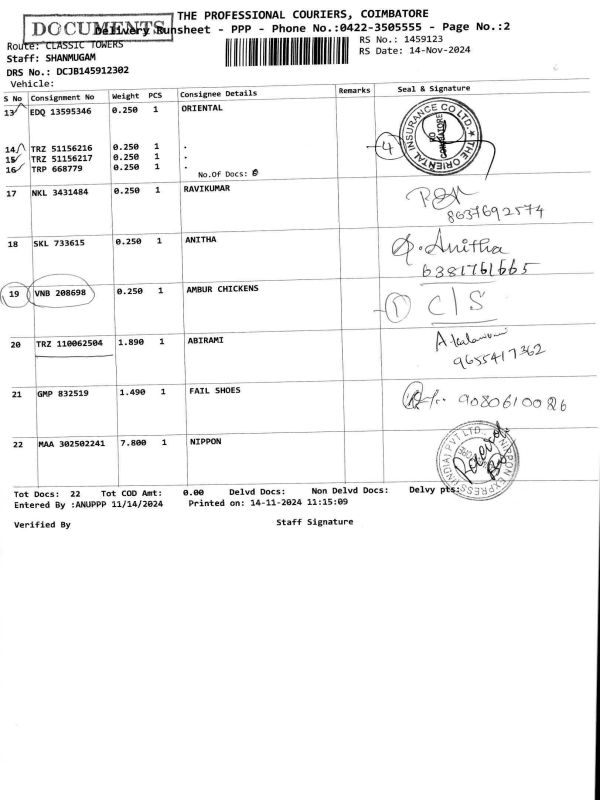 THE PROFESSIONAL COURIERS, COIMBATORE
DOCUMENTS
Delivery Runsheet - PPP - Phone No.:0422-3505555 - Page No.:2
Route: CLASSIC TOWERS
RS No.: 1459123
Staff: SHANMUGAM
RS Date: 14-Nov-2024
DRS No.: DCJB145912302
Vehicle:
S No Consignment No Weight PCS Consignee Details Remarks Seal & Signature
13 EDQ 13595346 0.250 1 ORIENTAL
THE ORIENTAL INSURANCE CO LTD.
COIMBATORE
4
14 TRZ 51156216 0.250 1 .
15 TRZ 51156217 0.250 1 .
16 TRP 668779 0.250 1 .
No.Of Docs:
17 NKL 3431484 0.250 1 RAVIKUMAR
8637692574
18 SKL 733615 0.250 1 ANITHA
Anitha
6381761665
19 VNB 208698 0.250 1 AMBUR CHICKENS
1 C/S
20 TRZ 110062504 1.890 1 ABIRAMI
9655417362
21 GMP 832519 1.490 1 FAIL SHOES
9080610086
22 MAA 302502241 7.800 1 NIPPON
NIPPON EXPRESS (INDIA) PVT LTD.
Tot Docs: 22 Tot COD Amt: 0.00 Delvd Docs: Non Delvd Docs: Delvy pts:
Entered By :ANUPPP 11/14/2024 Printed on: 14-11-2024 11:15:09
Verified By Staff Signature